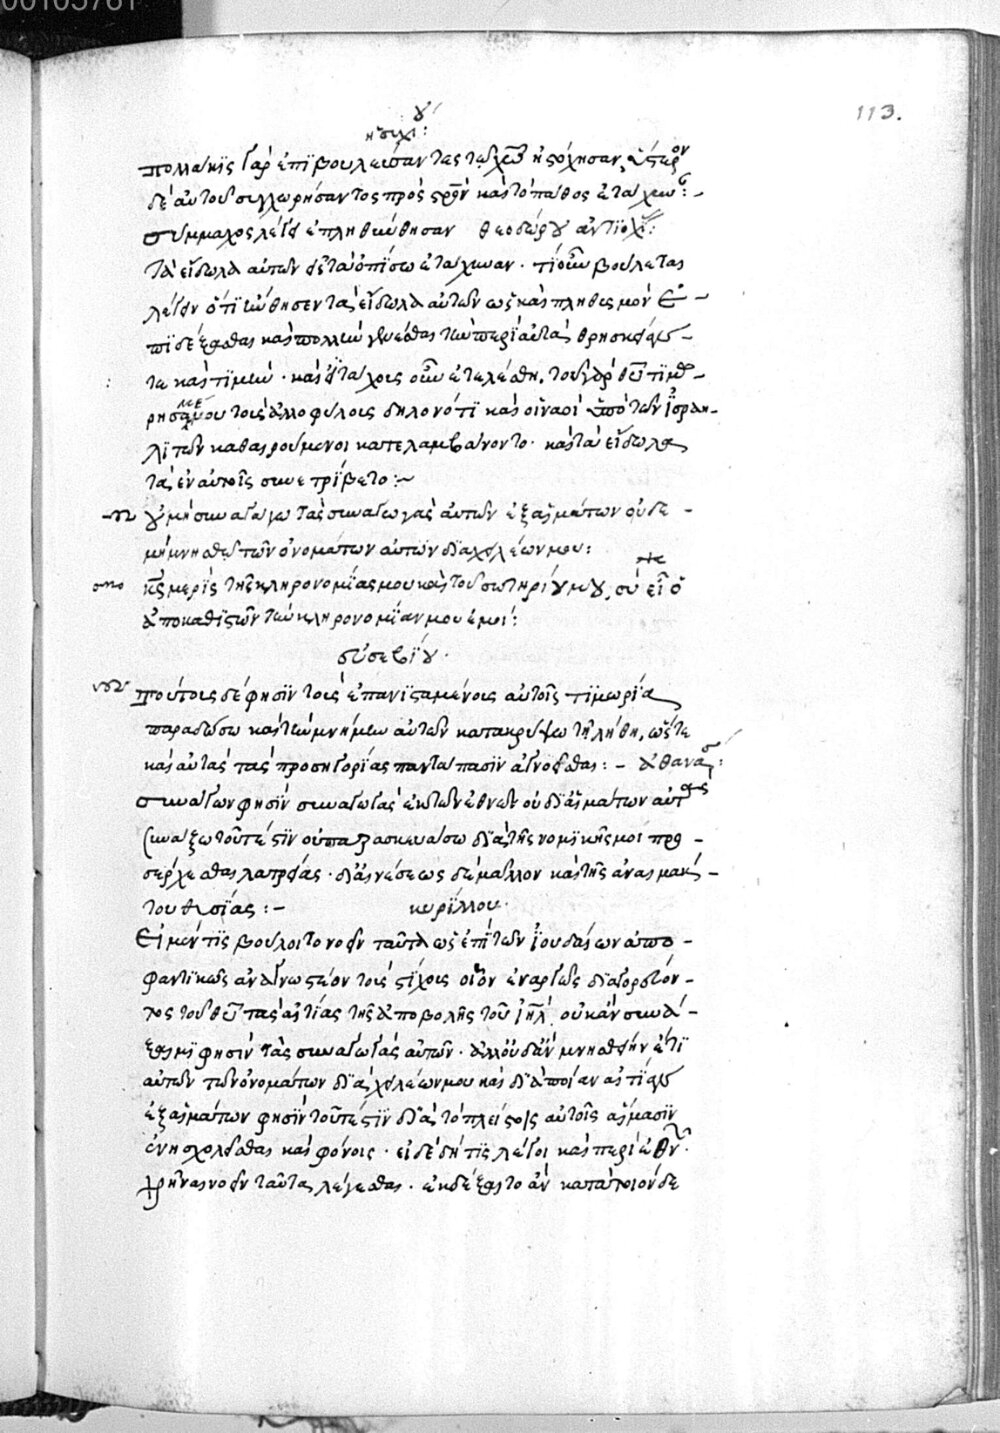 00105761
113.
ἡσυχίου:
πολλάκις γὰρ ἐπιβουλεύσαντες ταχέως ἠστόχησαν, ὕστερον
δὲ αὐτοῦ συγχωρήσαντος πρὸς καὶ τὸ πάθος ἐτάχυναν:-
σύμμαχος λέγει ἐπληθύνθησαν θεοδώρου ἀντιοχ:
τὰ εἴδωλα αὐτῶν μετὰ ταῦτα ὀπίσω ἐτάχυναν. τί οὖν βούλεται
λέγειν ὅτι ἐπληθύνθησαν τὰ εἴδωλα αὐτῶν ὡς καὶ πληθυσμὸν ἐ-
πιδέξασθαι καὶ πολλὴν γενέσθαι τὴν περὶ αὐτὰ θρησκείαν
τε καὶ τιμήν. καὶ ἡ τάχος οὖν ἐτελέσθη. τοῦ γὰρ θεοῦ τιμω-
ρησαμένου τοὺς ἀλλοφύλους δηλονότι καὶ οἱ ναοὶ ὑπὸ τῶν ἰσραη-
λιτῶν καθαιρούμενοι κατελαμβάνοντο. καὶ τὰ εἴδωλα
τὰ ἐν αὐτοῖς συνετρίβετο:-
οὐ μὴ συναγάγω τὰς συναγωγὰς αὐτῶν ἐξ αἱμάτων οὐδὲ
μὴ μνησθῶ τῶν ὀνομάτων αὐτῶν διὰ χειλέων μου:
κς μερὶς τῆς κληρονομίας μου καὶ τοῦ ποτηρίου μου, σὺ εἶ ὁ
ἀποκαθιστῶν τὴν κληρονομίαν μου ἐμοί:
εὐσεβίου.
τούτους δέ φησιν τοὺς ἐπανισταμένοις αὐτοῖς τιμωρίᾳ
παραδώσω καὶ τὴν μνήμην αὐτῶν κατακρύψω τῇ λήθῃ, ὥστε
καὶ αὐτὰς τὰς προσηγορίας παντάπασιν ἀγνοεῖσθαι:- ἀθανασ:
συνάγων φησὶν συναγωγὰς ἐκ τῶν ἐθνῶν οὐ δι' αἱμάτων αὐτὰς
συνάξω τοῦτέστιν οὐ παρασκευάσω διὰ τῆς νομικῆς μοι προ-
σέρχεσθαι λατρείας. δι' αἰνέσεως δὲ μᾶλλον καὶ τῆς ἀναιμάκ-
του θυσίας:- κυρίλλου.
Εἰ μέν τις βούλοιτο νοεῖν ταῦτα ὡς ἐπὶ τῶν ἰουδαίων ἀπο-
φαντικῶς ἀναγνωστέον τοὺς στίχους οἷον ἐναργῶς διαγορεύον-
τος τοῦ θεοῦ τὰς αἰτίας τῆς ἀποβολῆς τοῦ ἰηλ. οὐκ ἂν συνά-
ξαιμί φησιν τὰς συναγωγὰς αὐτῶν. ἀλλ' οὐδ' ἂν μνησθείην ἔτι
αὐτῶν τῶν ὀνομάτων διὰ χειλέων μου καὶ διὰ ποίαν αἰτίαν
ἐξ αἱμάτων φησὶν τοῦτέστιν διὰ τὸ πλείστοις αὐτοῖς αἵμασιν
ἐνησχολεῖσθαι καὶ φόνοις. εἰ δὲ δή τις λέγοι καὶ περὶ ἐθνῶν.
χρῆναι νοεῖν ταῦτα λέγεσθαι. ἐκδέξαιτο ἂν κατὰ τοιόνδε